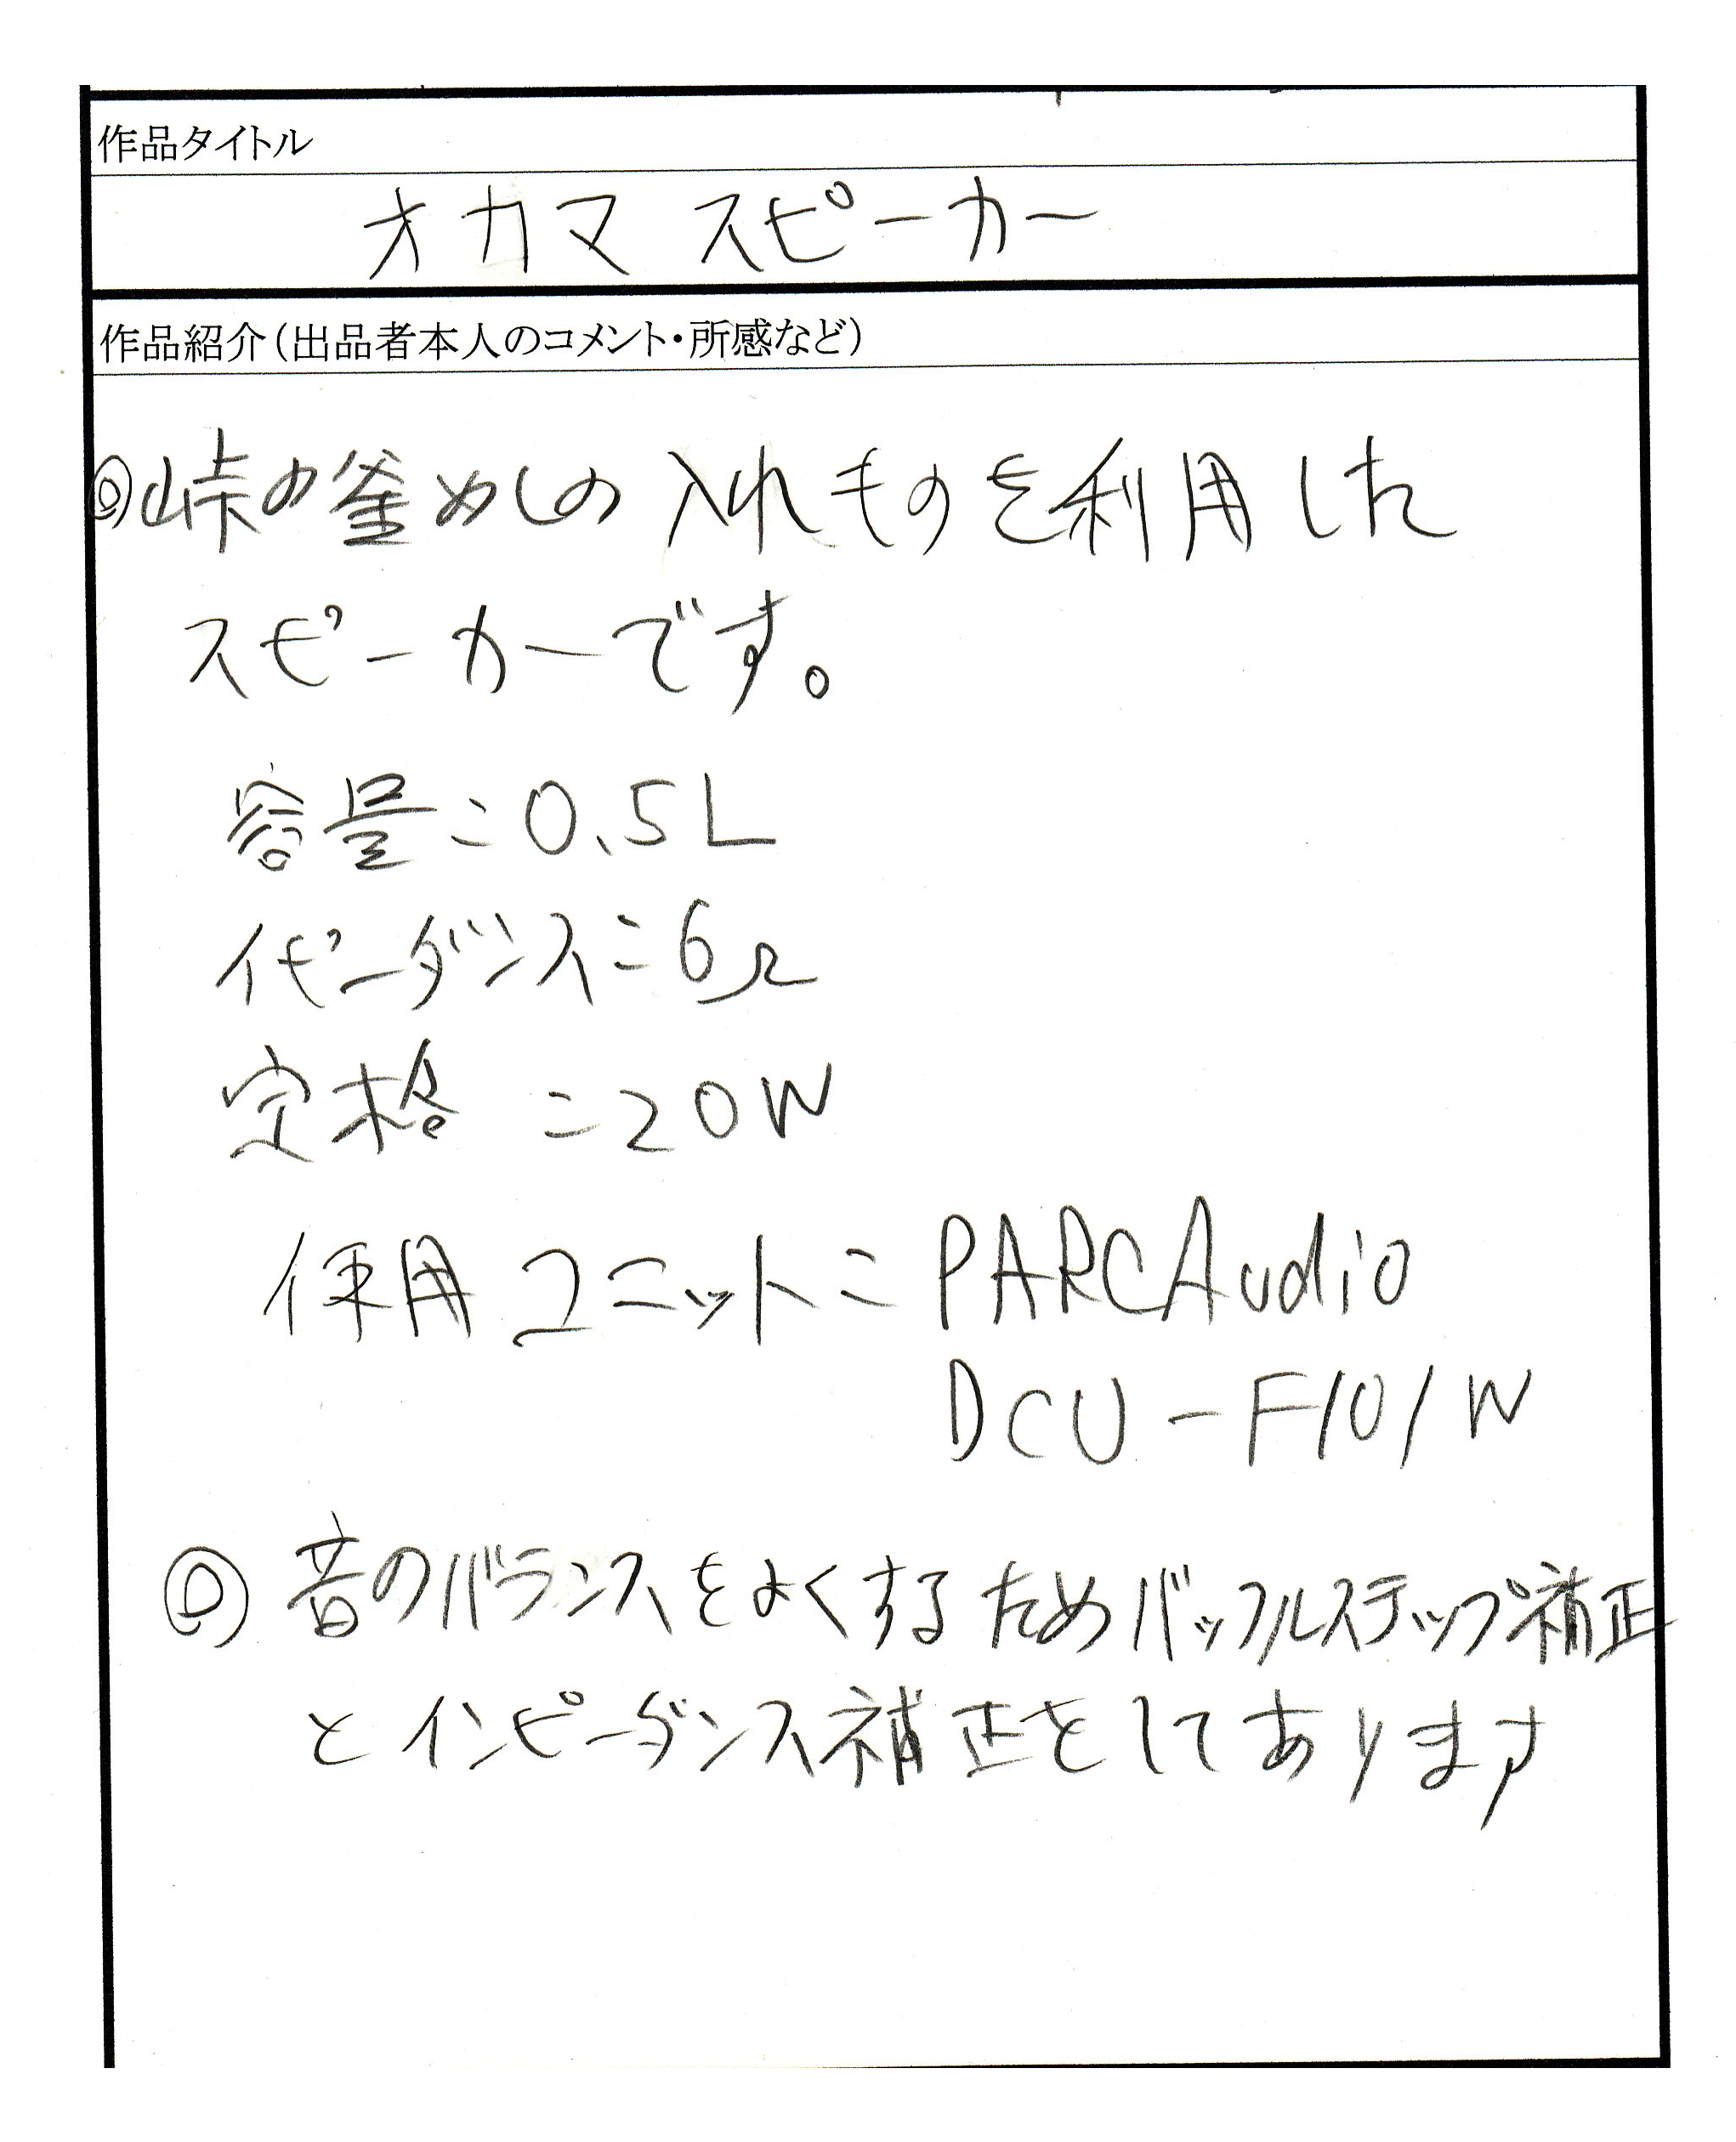 作品タイトル
オカマ スピーカー
作品紹介(出品者本人のコメント・所感など)
◎峠の釜めしの入れものを利用した
スピーカーです。
容量=0.5L
イピーダンス=6Ω
定格 =20W
使用ユニット=PARCAudio
DCU-F101W
◎音のバランスをよくするためバッフルステップ補正
とインピーダンス補正をしてあります